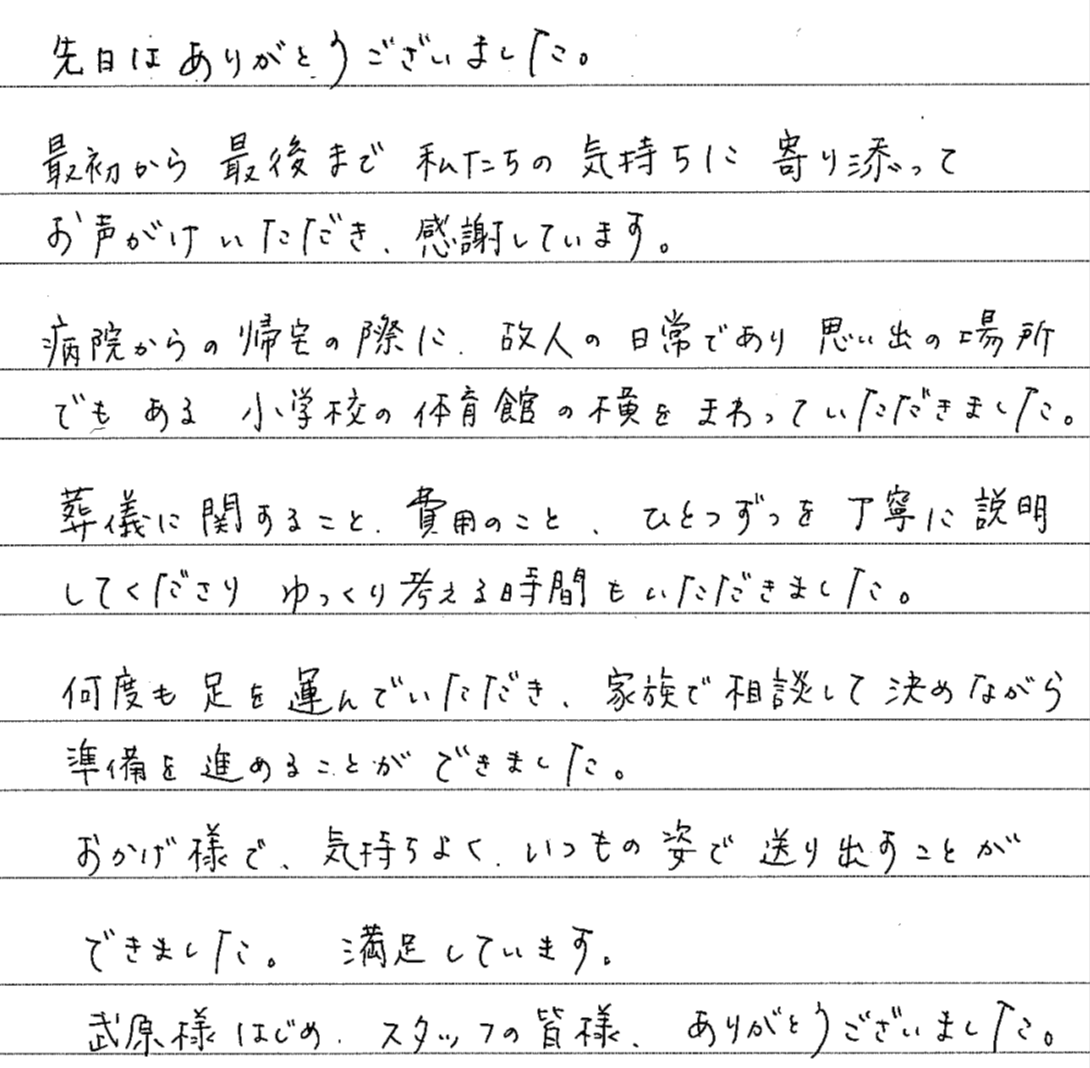 先日はありがとうございました。
最初から最後まで私たちの気持ちに寄り添って
お声がけいただき、感謝しています。
病院からの帰宅の際に、故人の日常であり思い出の場所
でもある小学校の体育館の横をまわっていただきました。
葬儀に関すること、費用のこと、ひとつずつを丁寧に説明
してくださりゆっくり考える時間もいただきました。
何度も足を運んでいただき、家族で相談して決めながら
準備を進めることができました。
おかげ様で、気持ちよく、いつもの姿で送り出すことが
できました。 満足しています。
武原様はじめ、スタッフの皆様、ありがとうございました。